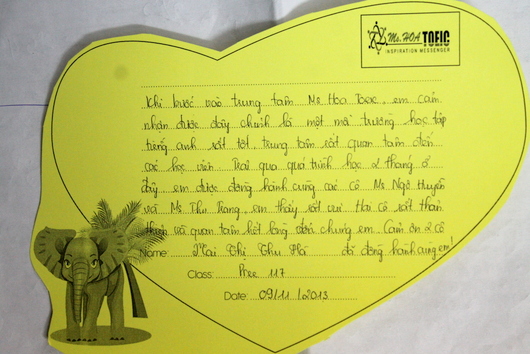 Ms. HOA TOEIC
INSPIRATION MESSENGER
Khi bước vào trung tâm Ms Hoa Toeic, em cảm
nhận được đây chính là một môi trường học tập
tiếng anh rất tốt, trung tâm rất quan tâm đến
các học viên. Trải qua quá trình học 2 tháng ở
đây em được đồng hành cùng các cô Ms Ngô Huyền
và Ms Thu Trang, em thấy rất vui. Hai cô rất thân
thiện và quan tâm hết lòng đến chúng em. Cảm ơn 2 cô
Name: Mai Thị Thu Hà đã đồng hành cùng em!
Class: Pree 117
Date: 09/11/2013